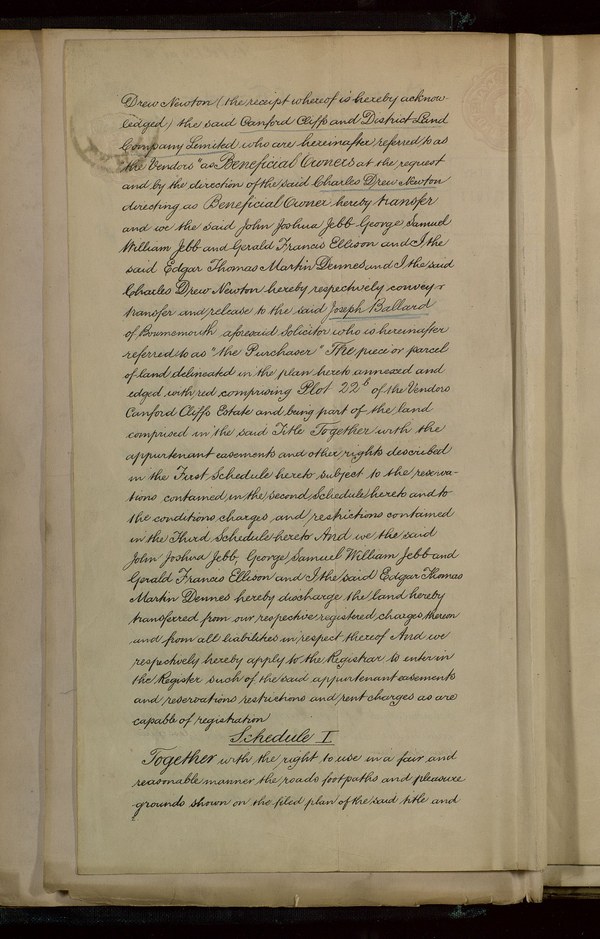 Drew Newton (the receipt whereof is hereby acknow-
ledged) the said Canford Cliffs and District Land
Company Limited who are hereinafter referred to as
"the Vendors" as Beneficial Owners at the request
and by the direction of the said Charles Drew Newton
directing as Beneficial Owner hereby transfer
and we the said John Joshua Jebb George Samuel
William Jebb and Gerald Francis Ellison and I the
said Edgar Thomas Martin Dennes and I the said
Charles Drew Newton hereby respectively convey &
transfer and release to the said Joseph Ballard
of Bournemouth aforesaid Solicitor who is hereinafter
referred to as "the Purchaser" The piece or parcel
of land delineated in the plan hereto annexed and
edged with red comprising Plot 22b of the Vendors
Canford Cliffs Estate and being part of the land
comprised in the said Title Together with the
appurtenant easements and other rights described
in the First Schedule hereto subject to the reserva-
tions contained in the second Schedule hereto and to
the conditions charges and restrictions contained
in the Third Schedule hereto And we the said
John Joshua Jebb, George Samuel William Jebb and
Gerald Francis Ellison and I the said Edgar Thomas
Martin Dennes hereby discharge the land hereby
transferred from our respective registered charges thereon
and from all liabilities in respect thereof And we
respectively hereby apply to the Registrar to enter in
the Register such of the said appurtenant easements
and reservations restrictions and rent charges as are
capable of registration
Schedule I
Together with the right to use in a fair and
reasonable manner the roads footpaths and pleasure
grounds shown on the filed plan of the said title and